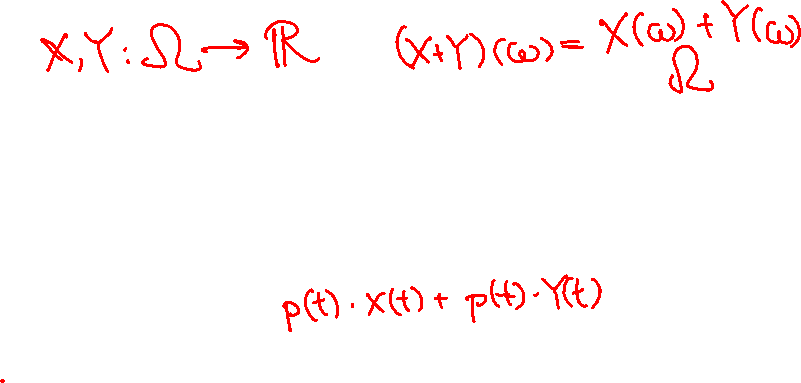 X, Y : Ω → ℝ (X+Y)(ω) = X(ω) + Y(ω)
Ω
p(t) · X(t) + p(t) · Y(t)